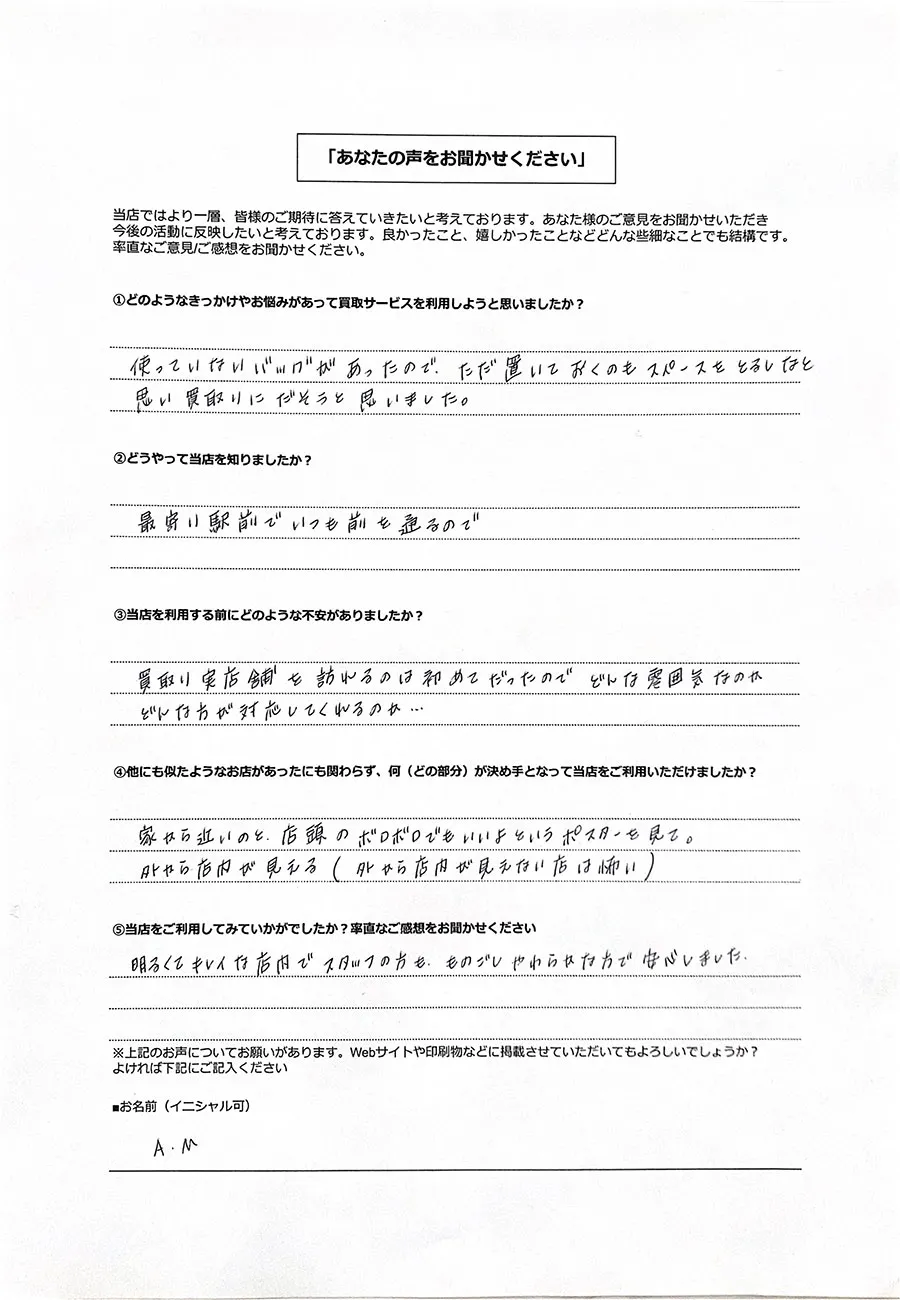 「あなたの声をお聞かせください」
当店ではより一層、皆様のご期待に答えていきたいと考えております。あなた様のご意見をお聞かせいただき
今後の活動に反映したいと考えております。良かったこと、嬉しかったことなどどんな些細なことでも結構です。
率直なご意見/ご感想をお聞かせください。
①どのようなきっかけやお悩みがあって買取サービスを利用しようと思いましたか？
使っていないバッグがあったので、ただ置いておくのもスペースをとるしなと
思い買取りにだそうと思いました。
②どうやって当店を知りましたか？
最寄り駅前でいつも前を通るので
③当店を利用する前にどのような不安がありましたか？
買取り実店舗を訪れるのは初めてだったのでどんな雰囲気なのか
どんな方が対応してくれるのか…
④他にも似たようなお店があったにも関わらず、何（どの部分）が決め手となって当店をご利用いただけましたか？
家から近いのと、店頭のボロボロでもいいよというポスターを見て。
外から店内が見える(外から店内が見えない店は怖い)
⑤当店をご利用してみていかがでしたか？率直なご感想をお聞かせください
明るくてキレイな店内でスタッフの方も、ものごしやわらかな方で安心しました。
※上記のお声についてお願いがあります。Webサイトや印刷物などに掲載させていただいてもよろしいでしょうか？
よければ下記にご記入ください
■お名前（イニシャル可）
A.M